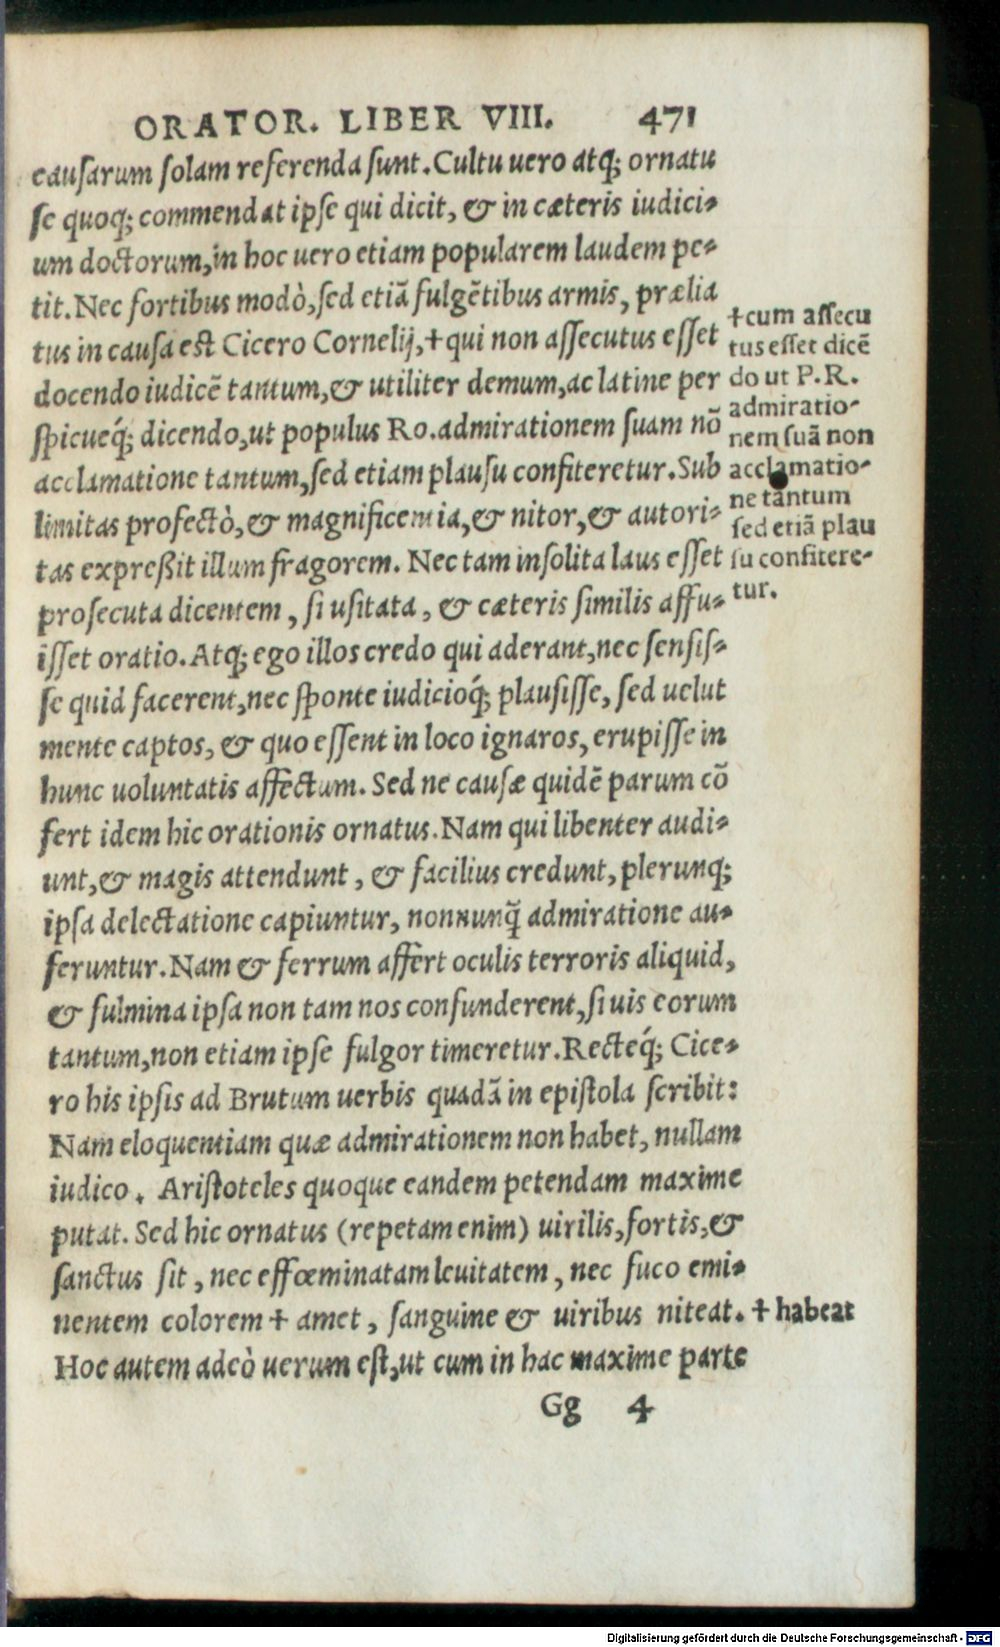 ORATOR. LIBER VIII. 471
causarum solam referenda sunt. Cultu uero atq; ornatu
se quoq; commendat ipse qui dicit, & in cæteris iudici-
um doctorum, in hoc uero etiam popularem laudem pe-
tit. Nec fortibus modò, sed etiã fulgẽtibus armis, prælia
tus in causa est Cicero Cornelij, + qui non assecutus esset
docendo iudicẽ tantum, & utiliter demum, ac latine per
spicueq́; dicendo, ut populus Ro. admirationem suam nõ
acclamatione tantum, sed etiam plausu confiteretur. Sub
limitas profectò, & magnificentia, & nitor, & autori-
tas expreßit illum fragorem. Nec tam insolita laus esset
prosecuta dicentem, si usitata, & cæteris similis affu-
isset oratio. Atq; ego illos credo qui aderant, nec sensis-
se quid facerent, nec sponte iudicioq́; plausisse, sed uelut
mente captos, & quo essent in loco ignaros, erupisse in
hunc uoluntatis affectum. Sed ne causæ quidẽ parum cõ
fert idem hic orationis ornatus. Nam qui libenter audi-
unt, & magis attendunt, & facilius credunt, plerunq;
ipsa delectatione capiuntur, nonnunq̃ admiratione au-
feruntur. Nam & ferrum affert oculis terroris aliquid,
& fulmina ipsa non tam nos confunderent, si uis eorum
tantum, non etiam ipse fulgor timeretur. Recteq́; Cice-
ro his ipsis ad Brutum uerbis quadã in epistola scribit:
Nam eloquentiam quæ admirationem non habet, nullam
iudico. Aristoteles quoque eandem petendam maxime
putat. Sed hic ornatus (repetam enim) uirilis, fortis, &
sanctus sit, nec effœminatam leuitatem, nec fuco emi-
nentem colorem + amet, sanguine & uiribus niteat.
Hoc autem adeò uerum est, ut cum in hac maxime parte
Gg 4
+ cum assecu
tus esset dicẽ
do ut P. R.
admiratio-
nem suã non
acclamatio-
ne tantum
sed etiã plau
su confitere-
tur.
+ habeat
Digitalisierung gefördert durch die Deutsche Forschungsgemeinschaft - DFG